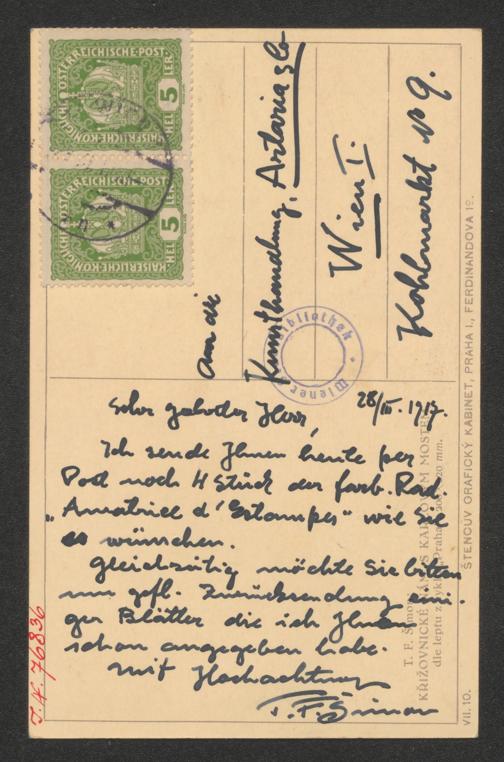 KAISERLICHE·KÖNIGLICHE·ÖSTERREICHISCHE·POST·
5 HELLER
KAISERLICHE·KÖNIGLICHE·ÖSTERREICHISCHE·POST·
5 HELLER
An die
Kunsthandlung Artaria & Co
Wien I.
Kohlmarkt No 9.
Bibliothek
Wiener
28/III. 1917.
Sehr geehrter Herr,
Ich sende Ihnen heute per
Post noch 4 Stück der farb. Rad.
"Amatrice d'Estampes" wie Sie
es wünschen.
Gleichzeitig möchte Sie bitten
um gefl. Zurücksendung eini-
ger Blätter die ich Ihnen
schon angegeben habe.
Mit Hochachtung
T. F. Šimon
J.N. 76836
T. F. Šimon
KŘIŽOVNICKÉ S KARLOVÝM MOSTEM
dle leptu z cyklu Praha mm.
VII. 10.
ŠTENCŮV GRAFICKÝ KABINET, PRAHA I., FERDINANDOVA